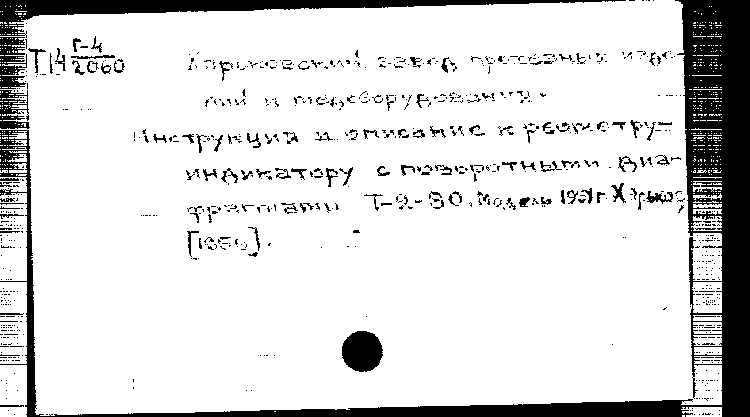 Г-4
Т14 2060
Харьковский завод протезных изде-
лий и медоборудования.
Инструкция и описание к реометру-
индикатору с поворотными диа-
фрагмами Т-2-80. Модель 1951г. Харьков,
[1956].